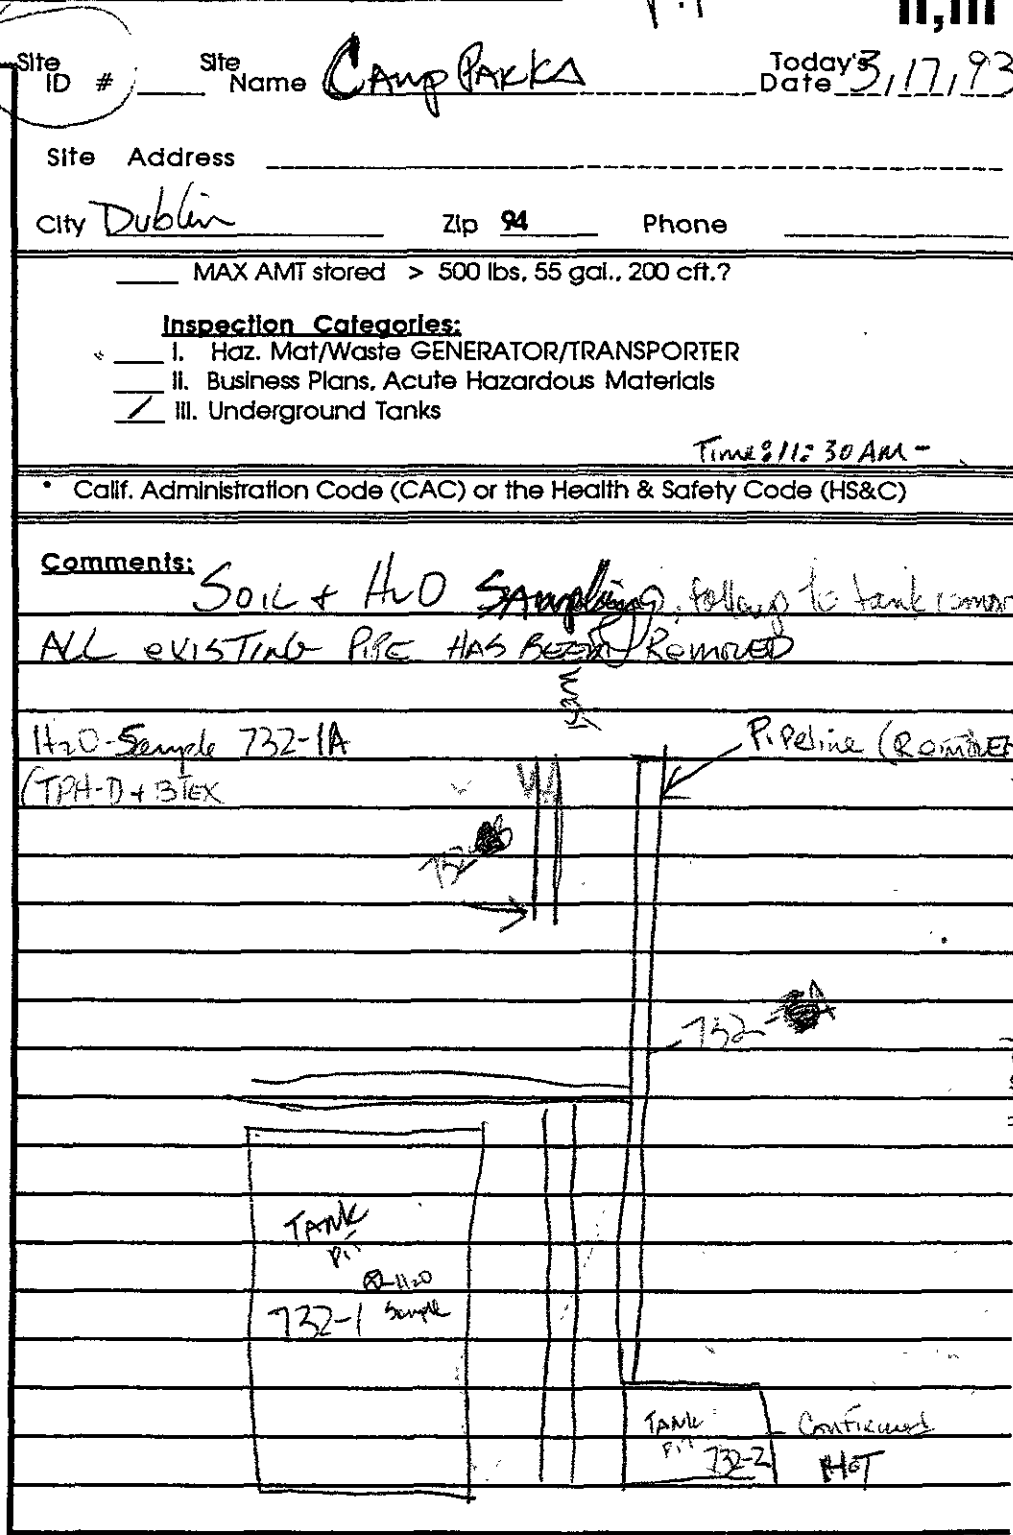 II, III
Site ID # ____ Site Name Camp PARKS Today's Date 3/17/93
Site Address
City Dublin Zip 94 Phone
____ MAX AMT stored > 500 lbs, 55 gal., 200 cft.?
Inspection Categories:
____ I. Haz. Mat/Waste GENERATOR/TRANSPORTER
____ II. Business Plans, Acute Hazardous Materials
/ III. Underground Tanks
Time: 11:30 AM -
* Calif. Administration Code (CAC) or the Health & Safety Code (HS&C)
Comments:
SOIL + H2O Sampling, follow up to tank
ALL EXISTING PIPE HAS BEEN REMOVED
H2O-Sample 732-1A
Pipeline
(TPH-D + BTEX
732-
732- A
TANK
Pit
H2O
732-1 Sample
TANK
Pit
732-2
Confirmed
HOT